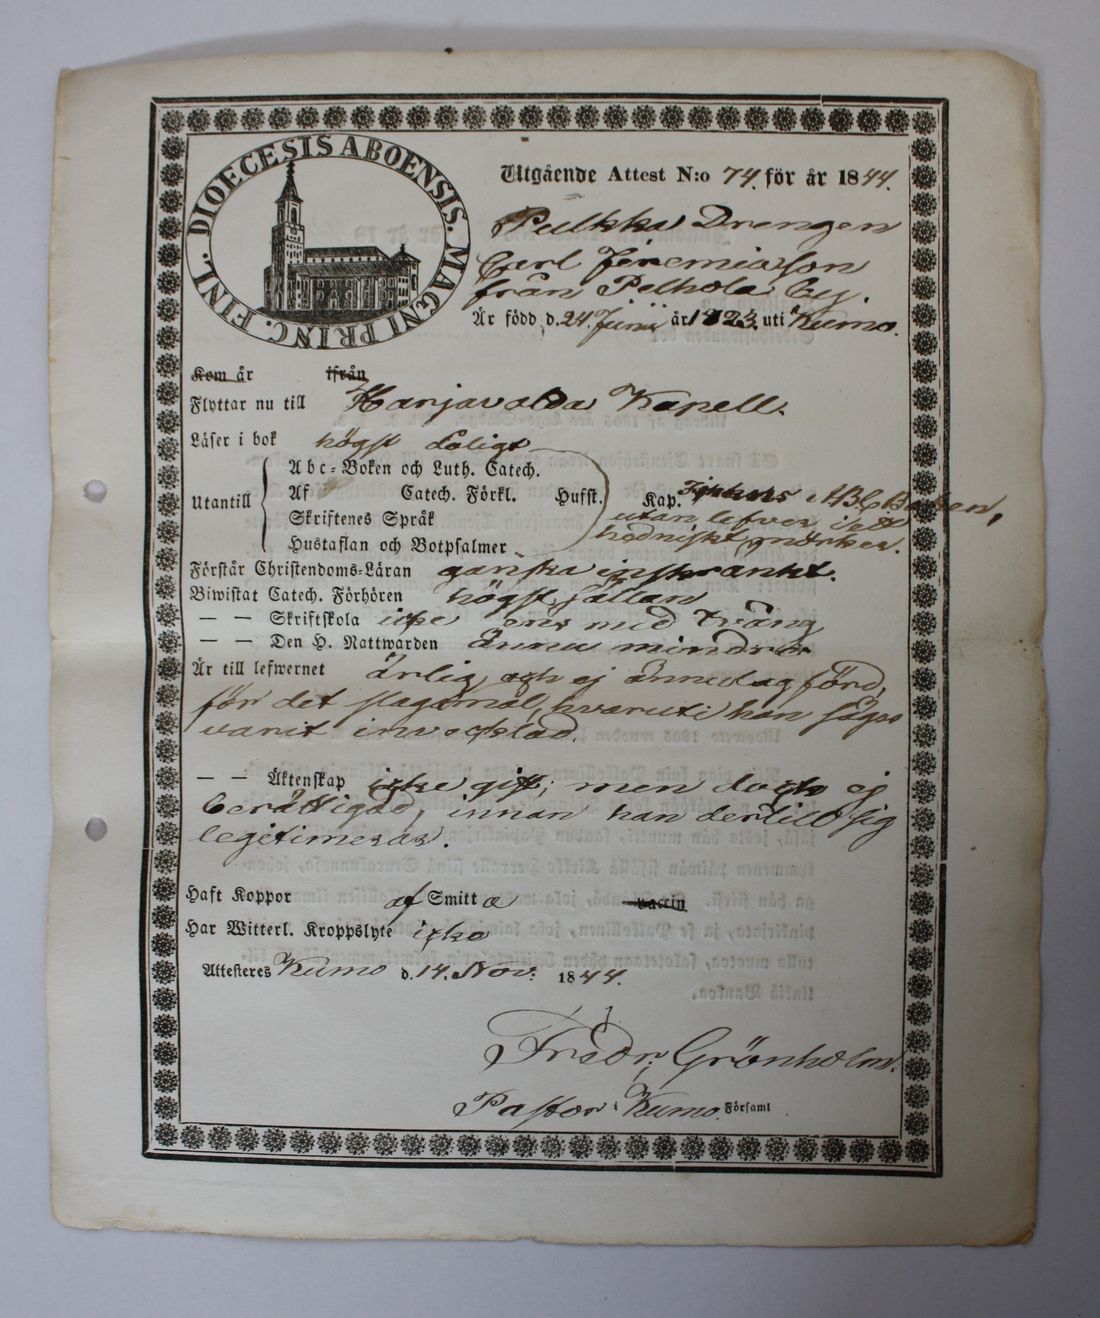 DIOECESIS ABOENSIS. MAGNI PRINC. FINL.
Utgående Attest N:o 74. för år 1844.
Pulkka Drengen
Carl Jeremiasson
från Pelhola By.
Är född d. 24. Junii år 1823. uti Kumo.
Kom år ifrån
Flyttar nu till Harjavalda Kapell.
Läser i bok högst dåligt
Utantill
Abc-Boken och Luth. Catech.
Af Catech. Förkl. Hufst. Kap. ABC Boken,
Skriftenes Språk utan lefver i ett
Hustaflan och Botpsalmer hedniskt mörker.
Förstår Christendoms-Läran ganska inskränkt.
Biwistat Catech. Förhören högst sällan
— — Skriftskola icke ens med tvång
— — Den H. Nattwarden ännu mindre
Är till lefwernet ärlig, och ej ännu lagförd,
för det slagsmål, hvaruti han säges
varit invecklad.
— — Äktenskap icke gift, men dock ej
berättigad, innan han dertill sig
legitimerar.
Haft Koppor af Smitta vaccin
Har Witterl. Kroppslyte icke
Attesteres Kumo d. 14. Nov. 1844.
Fredr. Grönholm.
Pastor i Kumo Församl